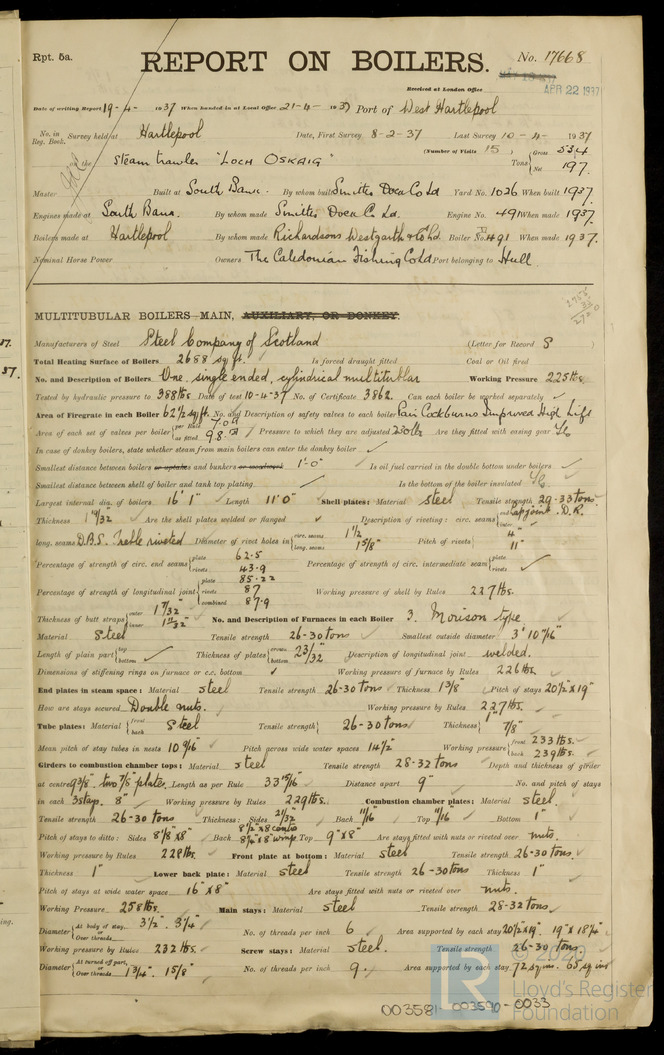 Rpt. 5a.
REPORT ON BOILERS.
No. 17668
Received at London Office
APR 22 1937
Date of writing Report 19-4- 1937 When handed in at Local Office 21-4- 1937 Port of West Hartlepool
No. in Reg. Book. Survey held at Hartlepool Date, First Survey 8-2-37 Last Survey 10-4- 1937
(Number of Visits 15)
on the Steam trawler "LOCH OSKAIG" Tons Gross 534 Net 197.
Master Built at South Bank. By whom built Smiths Dock Co Ld Yard No. 1026 When built 1937.
Engines made at South Bank. By whom made Smiths Dock Co Ld. Engine No. 491 When made 1937.
Boilers made at Hartlepool By whom made Richardsons Westgarth & Co Ld. Boiler No. 491 When made 1937.
Nominal Horse Power Owners The Caledonian Fishing Co Ld Port belonging to Hull
MULTITUBULAR BOILERS—MAIN, AUXILIARY, OR DONKEY.
Manufacturers of Steel Steel Company of Scotland (Letter for Record S)
Total Heating Surface of Boilers 2688 sq ft. Is forced draught fitted Coal or Oil fired
No. and Description of Boilers One. single ended, cylindrical multitubular Working Pressure 225 lbs.
Tested by hydraulic pressure to 388 lbs Date of test 10-4-37 No. of Certificate 3862. Can each boiler be worked separately ✓
Area of Firegrate in each Boiler 62½ sq ft. No. and Description of safety valves to each boiler Pair Cockburns Improved High Lift
Area of each set of valves per boiler per Rule as fitted 9.8 Pressure to which they are adjusted 230 lbs Are they fitted with easing gear Yes
In case of donkey boilers, state whether steam from main boilers can enter the donkey boiler ✓
Smallest distance between boilers or uptakes and bunkers or woodwork 1'-0" Is oil fuel carried in the double bottom under boilers ✓
Smallest distance between shell of boiler and tank top plating ✓ Is the bottom of the boiler insulated Yes
Largest internal dia. of boilers 16' 1" Length 11' 0" Shell plates: Material steel Tensile strength 29-33 tons
Thickness 1 19/32 Are the shell plates welded or flanged ✓ Description of riveting: circ. seams end lap joint. D.R. inter ✓
long. seams D.B.S. Treble riveted Diameter of rivet holes in circ. seams 1½" long. seams 1 5/8" Pitch of rivets 4" 11"
Percentage of strength of circ. end seams plate 62.5 rivets 43.9 Percentage of strength of circ. intermediate seam plate rivets ✓
Percentage of strength of longitudinal joint plate 85.22 rivets 87 combined 87.9 Working pressure of shell by Rules 227 lbs.
Thickness of butt straps outer 1 7/32" inner 1 11/32" No. and Description of Furnaces in each Boiler 3. Morison type
Material Steel Tensile strength 26-30 tons Smallest outside diameter 3' 10 7/16"
Length of plain part top bottom ✓ Thickness of plates crown bottom 23/32" Description of longitudinal joint welded.
Dimensions of stiffening rings on furnace or c.c. bottom ✓ Working pressure of furnace by Rules 226 lbs.
End plates in steam space: Material steel Tensile strength 26-30 tons Thickness 1 3/8" Pitch of stays 20½" x 19"
How are stays secured Double nuts. Working pressure by Rules 227 lbs.
Tube plates: Material front back Steel Tensile strength 26-30 tons Thickness 1" 7/8"
Mean pitch of stay tubes in nests 10 9/16" Pitch across wide water spaces 14½" Working pressure front 233 lbs. back 239 lbs.
Girders to combustion chamber tops: Material steel Tensile strength 28-32 tons Depth and thickness of girder
at centre 9 3/8". two 7/8" plates. Length as per Rule 33 15/16" Distance apart 9" No. and pitch of stays
in each 3 stays. 8" Working pressure by Rules 229 lbs. Combustion chamber plates: Material steel.
Tensile strength 26-30 tons Thickness: Sides 21/32" Back 11/16" Top 11/16" Bottom 1"
Pitch of stays to ditto: Sides 8 1/8" x 8" Back 8½" x 8 centre 8 3/8" x 8" wings Top 9" x 8" Are stays fitted with nuts or riveted over nuts.
Working pressure by Rules 228 lbs. Front plate at bottom: Material steel Tensile strength 26-30 tons.
Thickness 1" Lower back plate: Material steel Tensile strength 26-30 tons Thickness 1"
Pitch of stays at wide water space 16" x 8" Are stays fitted with nuts or riveted over nuts.
Working Pressure 258 lbs. Main stays: Material steel Tensile strength 28-32 tons.
Diameter At body of stay, or Over threads 3½". 3¼" No. of threads per inch 6 Area supported by each stay 20½" x 19". 19" x 18¼"
Working pressure by Rules 232 lbs. Screw stays: Material steel. Tensile strength 26-30 tons.
Diameter At turned off part, or Over threads 1¾". 1 5/8" No. of threads per inch 9. Area supported by each stay 72 sq ins. 65 sq ins
© 2020
Lloyd's Register
Foundation
003581-003590-0033